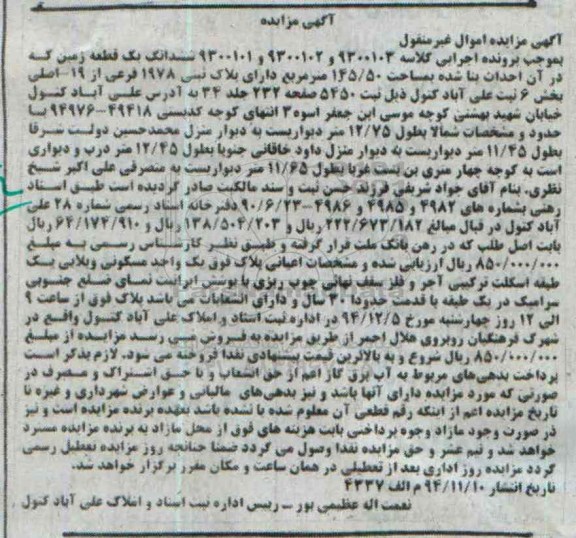 آگهی مزایده
آگهی مزایده اموال غیرمنقول
بموجب پرونده اجرایی کلاسه ۹۳۰۰۱۰۳ و ۹۳۰۰۱۰۲ و ۹۳۰۰۱۰۱ ششدانگ یک قطعه زمین که
در آن احداث بنا شده بمساحت ۱۴۵/۵۰ مترمربع دارای پلاک ثبتی ۱۹۷۸ فرعی از ۱۹-اصلی
بخش ۶ ثبت علی آباد کتول ذیل ثبت ۵۴۵۰ صفحه ۲۳۲ جلد ۳۴ به آدرس علی آباد کتول
خیابان شهید بهشتی کوچه موسی ابن جعفر اسوه ۳ انتهای کوچه کدپستی ۴۹۴۱۸-۹۴۹۷۶ با
حدود و مشخصات شمالا بطول ۱۲/۷۵ متر دیواریست به دیوار منزل محمدحسین دولت شرقا
بطول ۱۱/۴۵ متر دیواریست به دیوار منزل داود خاقانی جنوبا بطول ۱۲/۴۵ متر درب و دیواری
است به کوچه چهار متری بن بست غربا بطول ۱۱/۶۵ متر دیواریست به متصرفی علی اکبر شیخ
نظری. بنام آقای جواد شریفی فرزند حسن ثبت و سند مالکیت صادر گردیده است طبق اسناد
رهنی بشماره های ۴۹۸۲ و ۴۹۸۵ و ۴۹۸۶-۹۰/۶/۲۳ دفترخانه اسناد رسمی شماره ۲۸ علی
آباد کتول در قبال مبالغ ۲۲۲/۶۷۳/۱۸۲ ریال و ۱۳۸/۵۰۴/۲۰۳ ریال و ۶۴/۱۷۴/۹۱۰ ریال
بابت اصل طلب که در رهن بانک ملت قرار گرفته و طبق نظر کارشناس رسمی به مبلغ
۸۵۰/۰۰۰/۰۰۰ ریال ارزیابی شده و مشخصات اعیانی پلاک فوق یک واحد مسکونی ویلایی یک
طبقه اسکلت ترکیبی آجر و فلز سقف نهائی چوب ریزی با پوشش ایرانیت نمای ضلع جنوبی
سرامیک در یک طبقه با قدمت حدودا ۳۰ سال و دارای انشعابات می باشد پلاک فوق از ساعت ۹
الی ۱۲ روز چهارشنبه مورخ ۹۴/۱۲/۵ در اداره ثبت اسناد و املاک علی آباد کتول واقع در
شهرک فرهنگیان روبروی هلال احمر از طریق مزایده به فروش می رسد مزایده از مبلغ
۸۵۰/۰۰۰/۰۰۰ ریال شروع و به بالاترین قیمت پیشنهادی نقدا فروخته می شود. لازم بذکر است
پرداخت بدهی‌های مربوط به آب برق گاز اعم از حق انشعاب و یا حق اشتراک و مصرف در
صورتی که مورد مزایده دارای آنها باشد و نیز بدهی‌های مالیاتی و عوارض شهرداری و غیره تا
تاریخ مزایده اعم از اینکه رقم قطعی آن معلوم شده یا نشده باشد بعهده برنده مزایده است و نیز
در صورت وجود مازاد وجوه پرداختی بابت هزینه های فوق از محل مازاد به برنده مزایده مسترد
خواهد شد و نیم عشر و حق مزایده نقدا وصول می گردد ضمنا چنانچه روز مزایده تعطیل رسمی
گردد مزایده روز اداری بعد از تعطیلی در همان ساعت و مکان مقرر برگزار خواهد شد.
تاریخ انتشار ۹۴/۱۱/۱۰ م الف ۴۳۳۷
نعمت اله عظیمی پور - رییس اداره ثبت اسناد و املاک علی آباد کتول